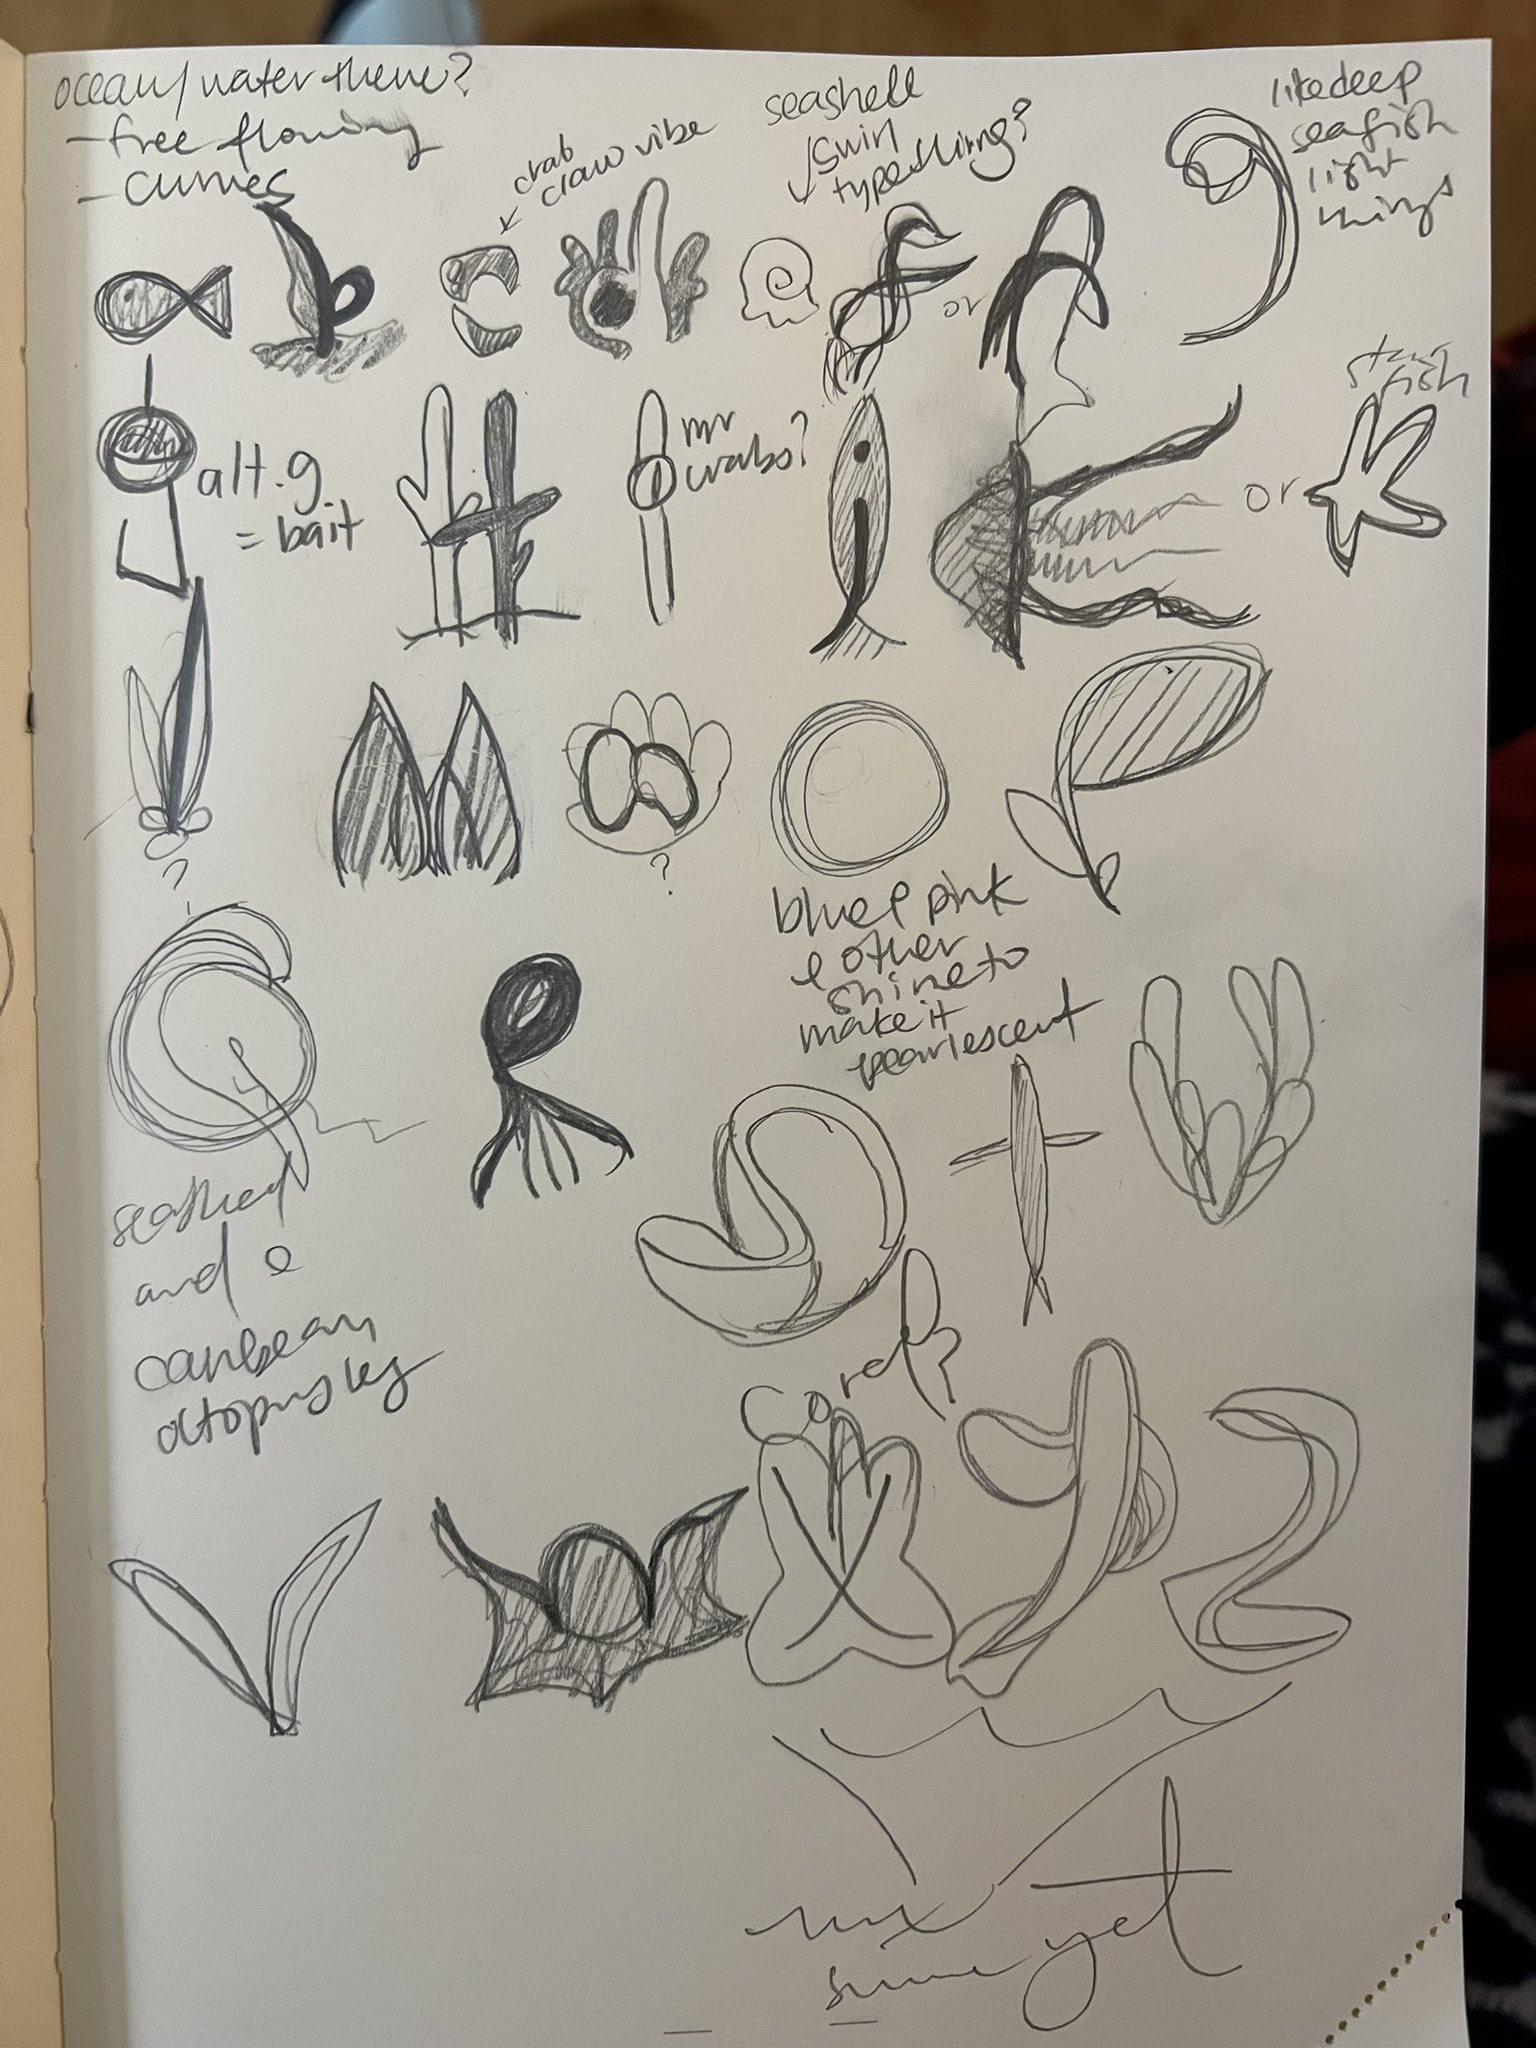 ocean/water theme?
- free flowing
- curves
crab
claw vibe
seashell
swirl
type thing?
like deep
sea fish
light
things
or
star
fish
alt. g
= bait
mr
crabs?
or
?
?
blue & pink
& other
shine to
make it
pearlescent
and
octopus leg
Coral?
sure yet